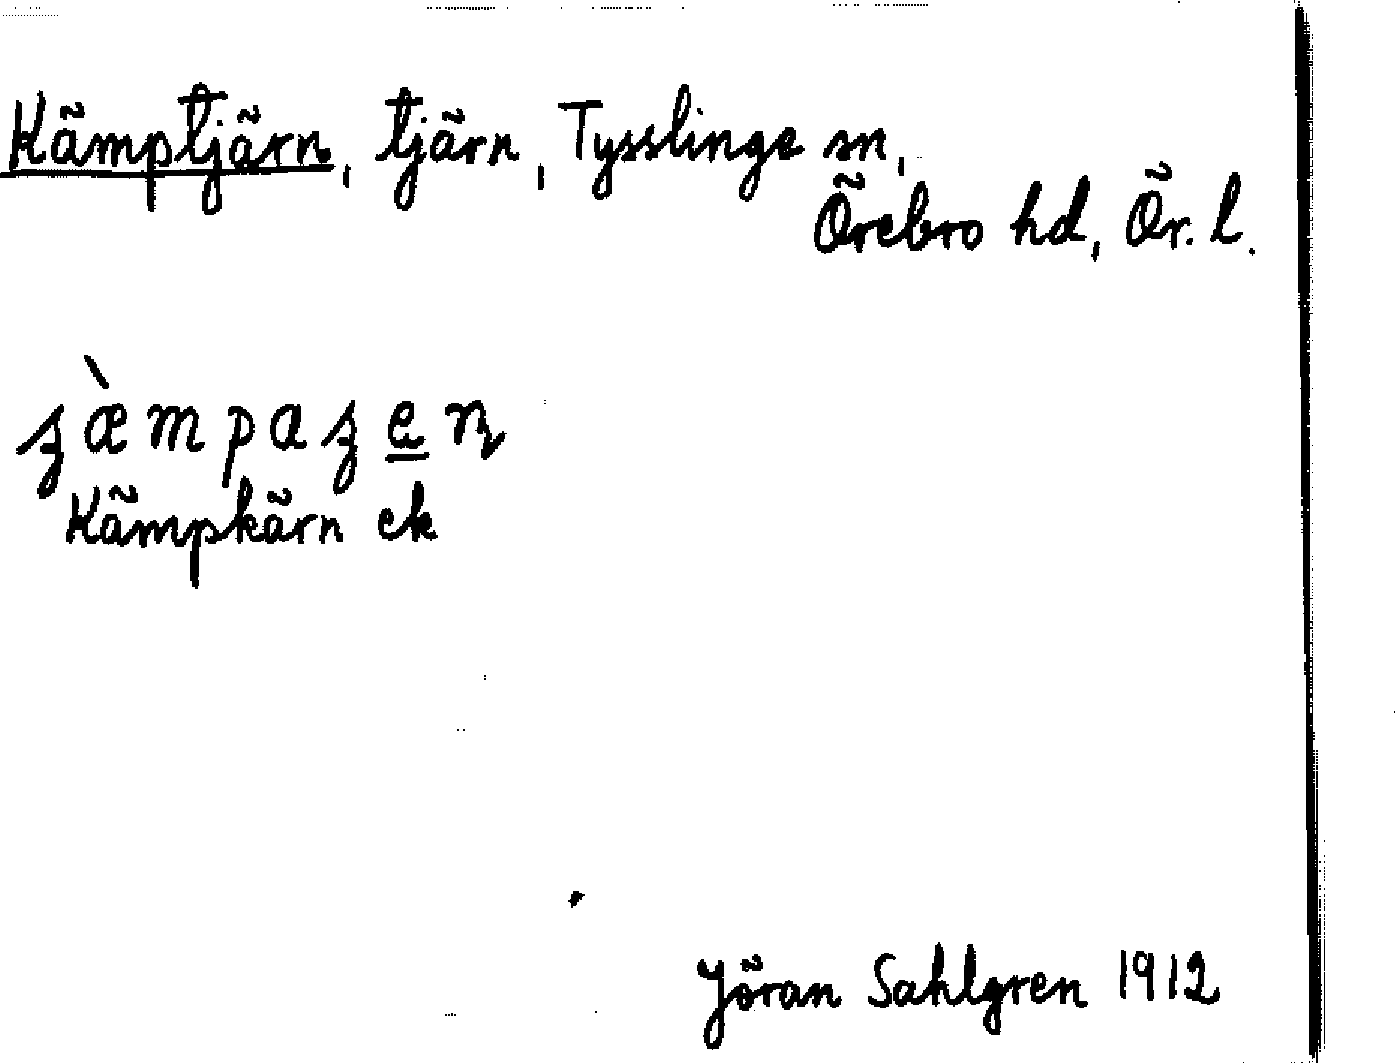 Kämptjärn, tjärn, Tysslinge sn,
Örebro hd, Ör. l.
ʒæ̀mpaʒe̲ɳ
Kämpkärn ek
Jöran Sahlgren 1912